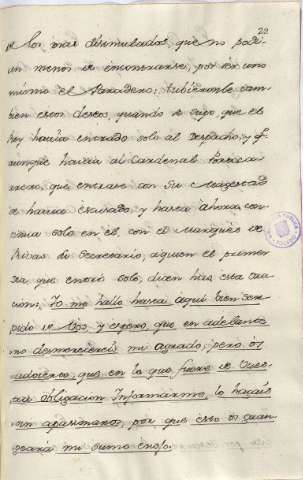 20
de los mas disimulados, que no podi-
an menos de encontrarse, por ser uno
mismo el Paradero; tubieronle tam-
bien estos deseos, quando se supo que el
Rey havia entrado solo al Despacho, y q.
aunque havia al Cardenal
que entrase con Su Magestad
se havia escusado, y hasta ahora con-
tinua solo en el, con el Marques de
Ribas su Secretario, aquien el primer
dia que entró solo, dicen hizo esta ora-
cion: Yo me hallo hasta aqui bien ser-
vido de Vos, y espero, que en adelante
no desmerecereis mi agrado; pero os
advierto, que en lo que fuere de Vues-
tra obligacion Informarme, lo hagais
sin apasionaros, por que esto os gran-
gearia mi sumo enojo.